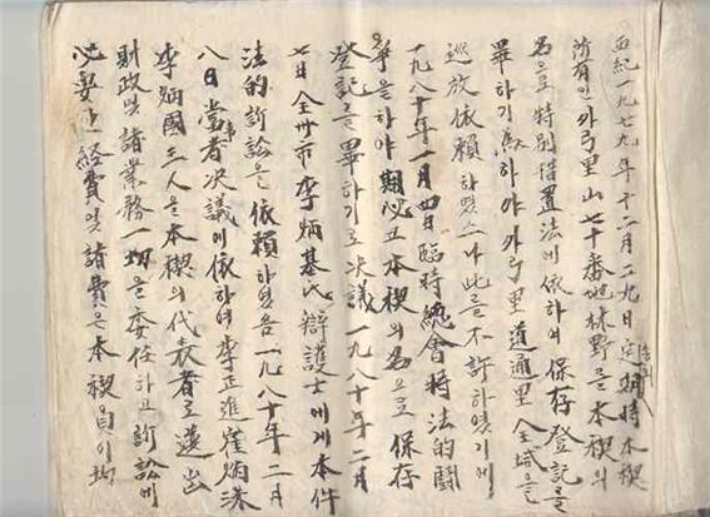 西紀一九七九年十二月二九日定期時本禊
所有인 外弓里山七十番地林野를 本禊의
名으로 特別措置法에 依하여 保存登記를
畢하기 爲하야 外弓里 道通里 全域을
巡放依賴하였으나 此를 不許하였기에
一九八十年一月四日 臨時總會時 法的鬪
爭을 하야 期必고 本禊의 名으로 保存
登記를 畢하기로 决議 一九八十年二月
七日 全州市 李炳基氏 辯護士에게 本件
法的訴訟을 依賴하였음 一九八十年二月
八日 當事者决議에 依하여 李正進 崔炳洙
李炳國 三人을 本禊의 代表者로 選出
財政및 諸業務一切을 委任하고 訴訟에
必要한 経費및 諸費은 本禊員이 均